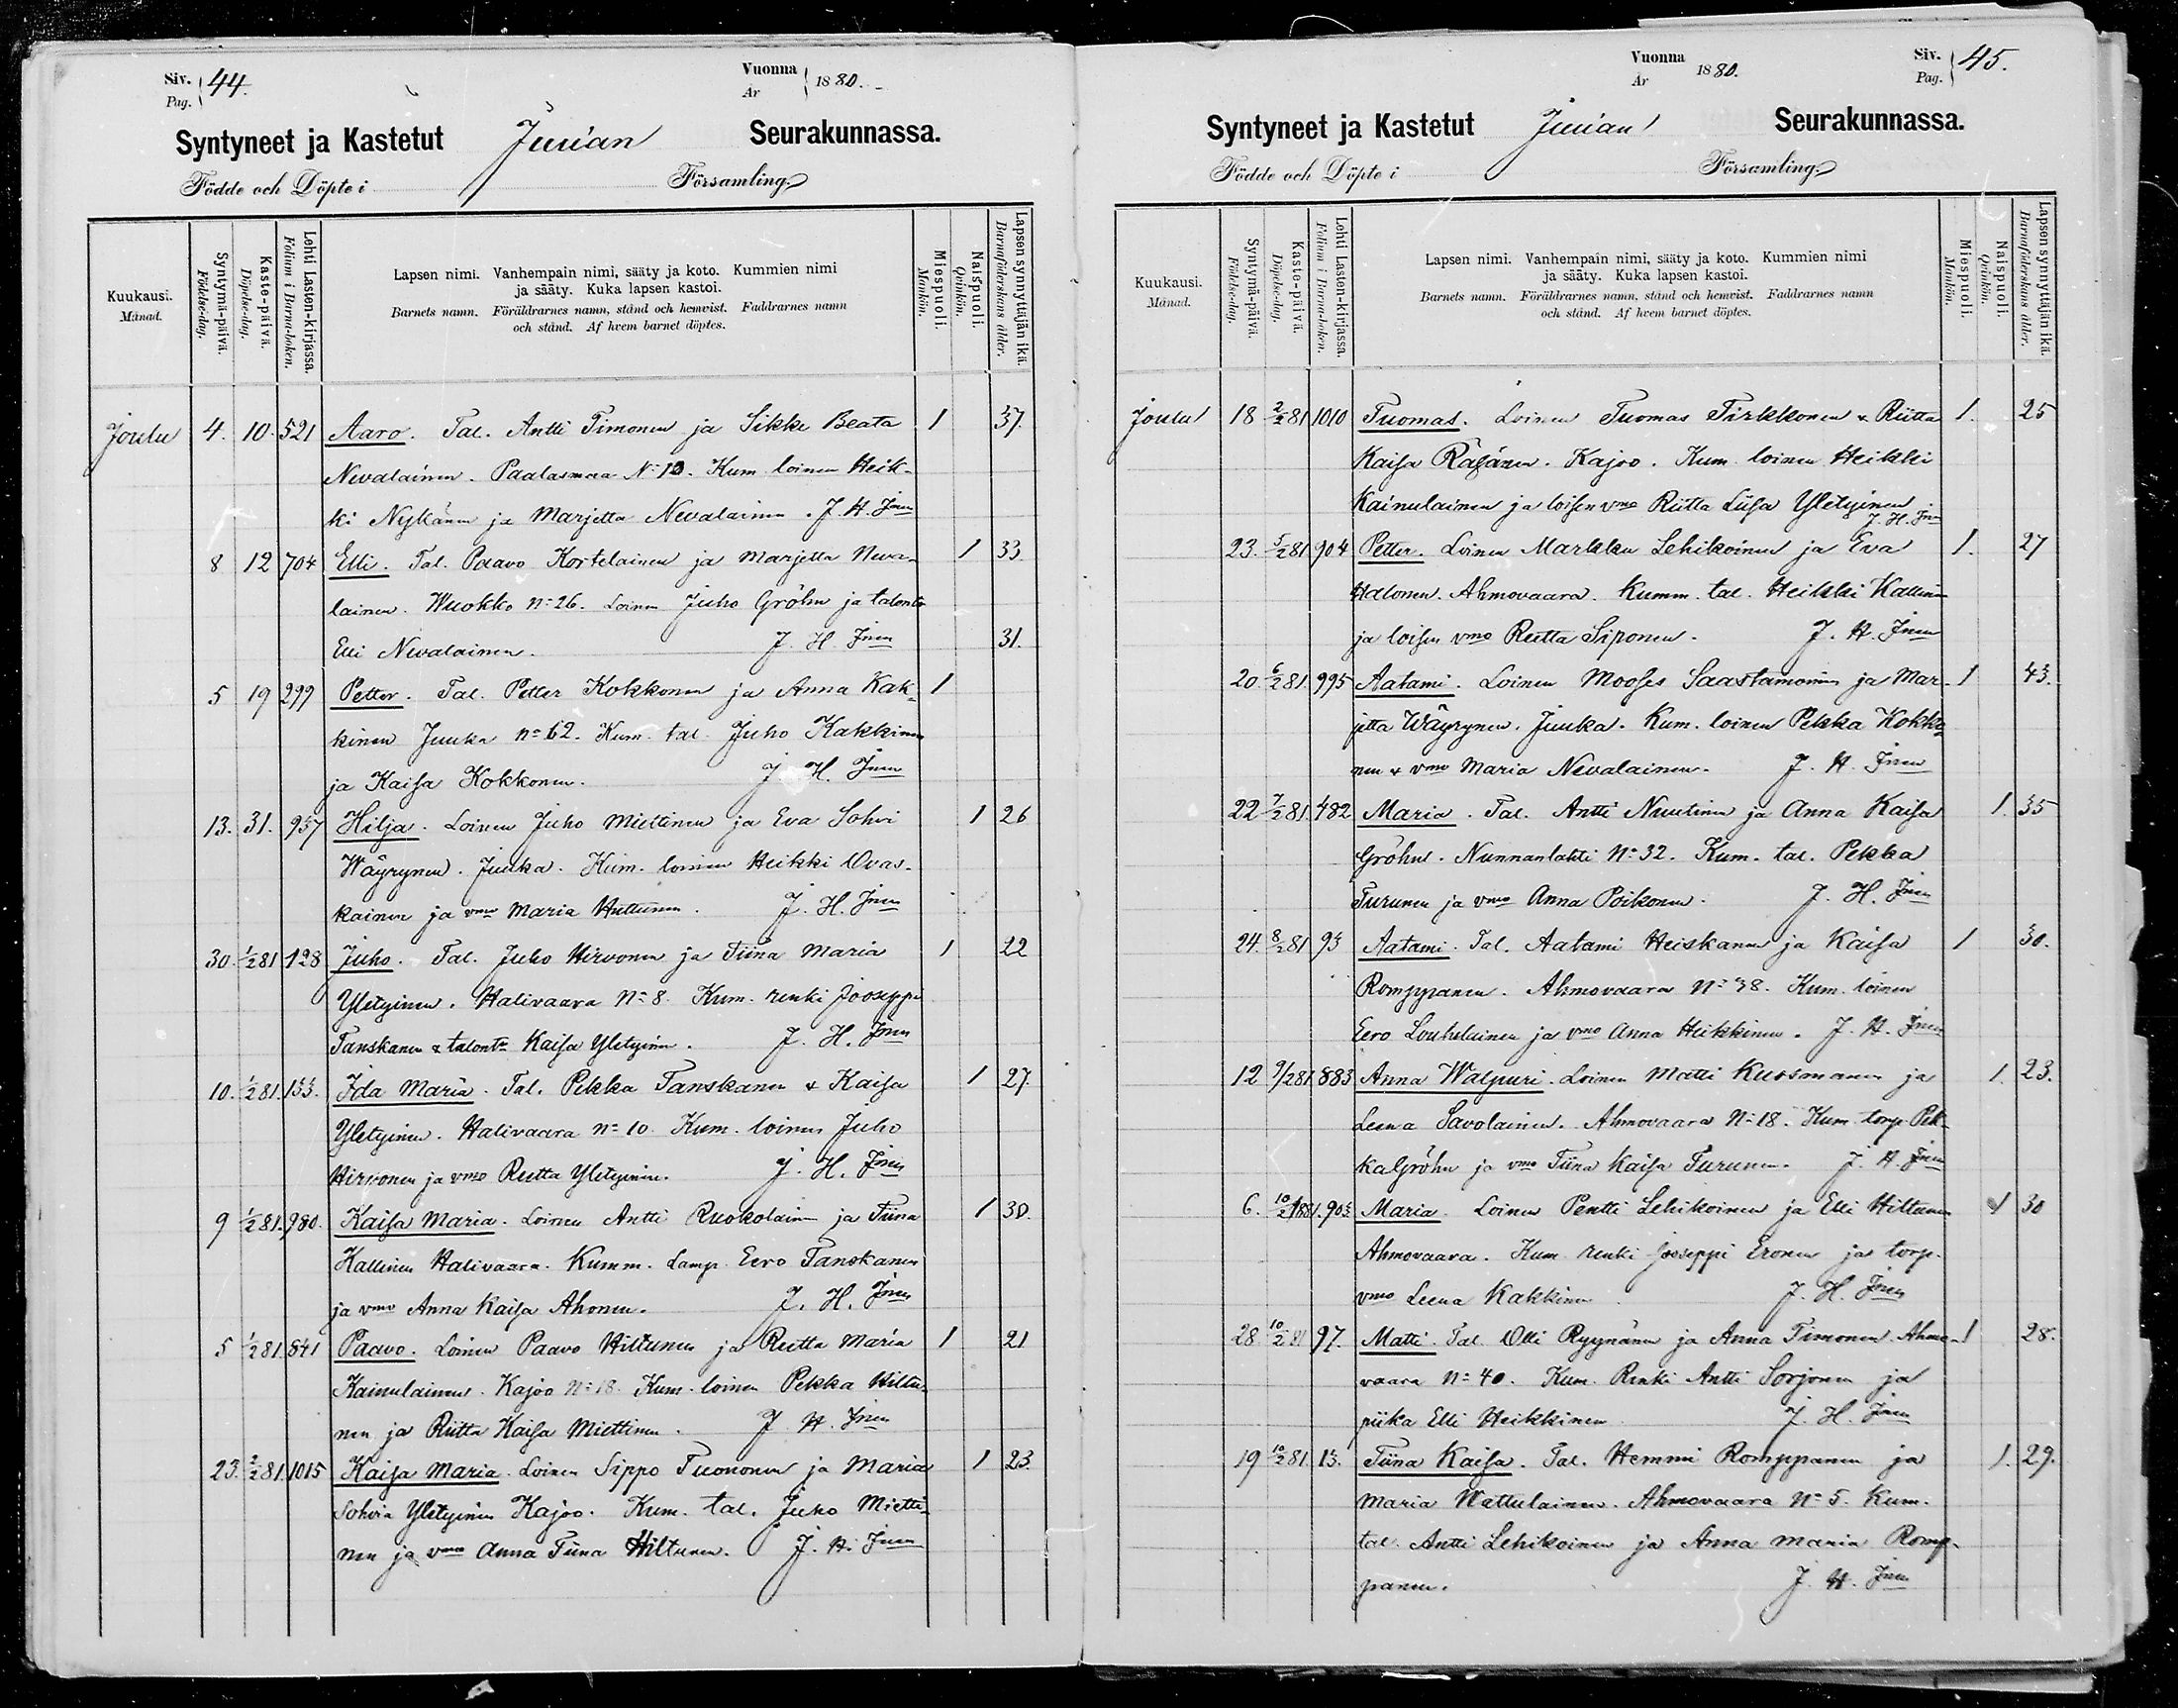 Siv. Pag. 44.
Vuonna År 1880.
Syntyneet ja Kastetut Juuan Seurakunnassa.
Födde och Döpte i Församling.
Kuukausi. Månad.
Syntymä-päivä. Födelse-dag.
Kaste-päivä. Döpelse-dag.
Lehti Lasten-kirjassa. Folium i Barna-boken.
Lapsen nimi. Vanhempain nimi, sääty ja koto. Kummien nimi
ja sääty. Kuka lapsen kastoi.
Barnets namn. Föräldrarnes namn, stånd och hemvist. Faddrarnes namn
och stånd. Af hvem barnet döptes.
Miespuoli. Mankön.
Naispuoli. Qvinkön.
Lapsen synnyttäjän ikä. Barnaföderskans ålder.
Joulu 4. 10. 521 Aaro. Tal. Antti Timonen ja Sikke Beata 1 37.
Nevalainen. Paalasmaa No 13. Kum. loinen Heik-
ki Nykänen ja Marjetta Nevalainen. J. H. Jnen
8 12 704 Elli. Tal. Paavo Kortelainen ja Marjetta Neva- 1 33.
lainen. Wuokko No 26. Loinen Juho Gröhn ja talont
Elli Nevalainen. J. H. Jnen 31.
5 19 299 Petter. Tal. Petter Kokkonen ja Anna Kak- 1
kinen Juuka No 62. Kum. tal. Juho Kakkinen
ja Kaisa Kokkonen. J. H. Jnen
13. 31. 957 Hilja. Loinen Juho Miettinen ja Eva Sohvi 1 26
Wäyrynen. Juuka. Kum. loinen Heikki Ovas-
kainen ja vmo Maria Huttunen. J. H. Jnen
30. 1/2 81 128 Juho. Tal. Juho Hirvonen ja Tiina Maria 1 22
Yletyinen. Halivaara No 8. Kum. renki Jooseppi
Tanskanen & talontr Kaisa Yletyinen. J. H. Jnen
10. 1/2 81. 133. Ida Maria. Tal. Pekka Tanskanen & Kaisa 1 27.
Yletyinen. Halivaara No 10. Kum. loinen Juho
Hirvonen ja vmo Reetta Yletyinen. J. H. Jnen
9 1/2 81. 980. Kaisa Maria. Loinen Antti Ruokolainen ja Tiina 1 30.
Hallinen Halivaara. Kumm. Lamp. Eero Tanskanen
ja vmo Anna Kaisa Ahonen. J. H. Jnen
5 1/2 81. 841 Paavo. Loinen Paavo Hiltunen ja Reetta Maria 1 21
Kainulainen. Kajoo No 18. Kum. loinen Pekka Hiltu-
nen ja Riitta Kaisa Miettinen. J. H. Jnen
23. 2/2 81. 1015 Kaisa Maria. Loinen Sippo Tuononen ja Maria 1 23.
Sohvia Yletyinen Kajoo. Kum. tal. Juho Mietti-
nen ja vmo Anna Tiina Hiltunen. J. H. Jnen
Vuonna År 1880.
Siv. Pag. 45.
Syntyneet ja Kastetut Juuan Seurakunnassa.
Födde och Döpte i Församling.
Kuukausi. Månad.
Syntymä-päivä. Födelse-dag.
Kaste-päivä. Döpelse-dag.
Lehti Lasten-kirjassa. Folium i Barna-boken.
Lapsen nimi. Vanhempain nimi, sääty ja koto. Kummien nimi
ja sääty. Kuka lapsen kastoi.
Barnets namn. Föräldrarnes namn, stånd och hemvist. Faddrarnes namn
och stånd. Af hvem barnet döptes.
Miespuoli. Mankön.
Naispuoli. Qvinkön.
Lapsen synnyttäjän ikä. Barnaföderskans ålder.
Joulu 18 2/2 81 1010 Tuomas. Loinen Tuomas Tirkkonen & Riitta 1. 25
Kaisa Räsänen. Kajoo. Kum. loinen Heikki
Kainulainen ja loisen vmo Riitta Liisa Yletyinen
J. H. Jnen
23. 5/2 81 904 Petter. Loinen Markku Lehikoinen ja Eva 1. 27
Halonen. Ahmovaara. Kumm. tal. Heikki Kallinen
ja loisen vmo Reetta Siponen. J. H. Jnen
20. 6/2 81. 995 Aatami. Loinen Mooses Saastamoinen ja Mar- 1 43.
jetta Wäyrynen. Juuka. Kum. loinen Pekka Kokko-
nen & vmo Maria Nevalainen. J. H. Jnen
22 7/2 81. 482 Maria. Tal. Antti Nuutinen ja Anna Kaisa 1. 35
Gröhn. Nunnanlahti No 32. Kum. tal. Pekka
Turunen ja vmo Anna Poikonen. J. H. Jnen
24. 8/2 81 93 Aatami. Tal. Aatami Heiskanen ja Kaisa 1 30.
Romppanen. Ahmovaara No 38. Kum. loinen
Eero Louhelainen ja vmo Anna Heikkinen. J. H. Jnen
12 9/2 81 883 Anna Walpuri. Loinen Matti Kuosmanen ja 1. 23.
Leena Savolainen. Ahmovaara No 18. Kum. torp. Pek-
ka Gröhn ja vmo Tiina Kaisa Turunen. J. H. Jnen
6. 10/2 1881. 903. Maria. Loinen Pentti Lehikoinen ja Elli Hiltunen 1 30
Ahmovaara. Kum. renki Jooseppi Eronen ja torp.
vmo Leena Kakkinen J. H. Jnen
28 10/2 81 97. Matti. Tal. Olli Ryynänen ja Anna Timonen. Ahmo- 1 28.
vaara No 40. Kum. Renki Antti Sorjonen ja
piika Elli Heikkinen J. H. Jnen
19 10/2 81. 13. Tiina Kaisa. Tal. Hemmi Romppanen ja 1. 29.
Maria Wattulainen. Ahmovaara No 5. Kum.
tal. Antti Lehikoinen ja Anna Maria Romp-
panen. J. H. Jnen